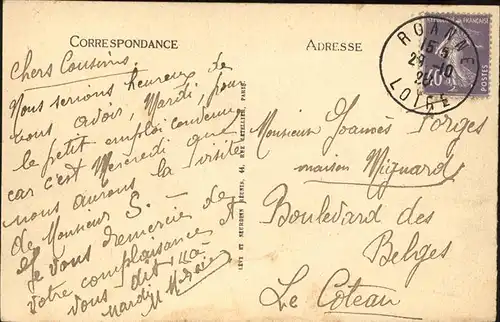 CORRESPONDANCE
Chers Cousins.
Nous serions heureux de
vous avoir, Mardi, pour
le petit emploi convenu
car c'est Mercredi que
nous aurons la visite
de Monsieur S.
Je vous remercie de
votre complaisance et
vous dit
Mardi
LÉVY ET NEURDEIN RÉUNIS, 44, RUE LETELLIER, PARIS
ADRESSE
RÉPUBLIQUE FRANÇAISE
POSTES
ROANNE
29-10
LOIRE
Monsieur Joannès Forges
maison Mignard
Boulevard des
Belges
Le Coteau